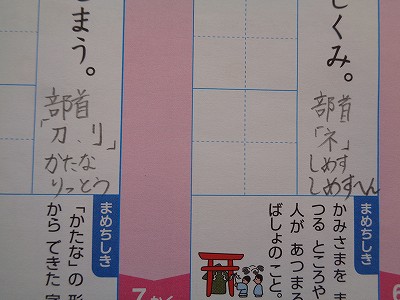 しくみ。
部首
「ネ」
しめす
しめすへん
まめちしき
かみさまを ま
つる ところや
人が あつまる
ばしょのこと。
まう。
部首
「刀、刂」
かたな
りっとう
まめちしき
「かたな」の 形
から できた 字
7
6